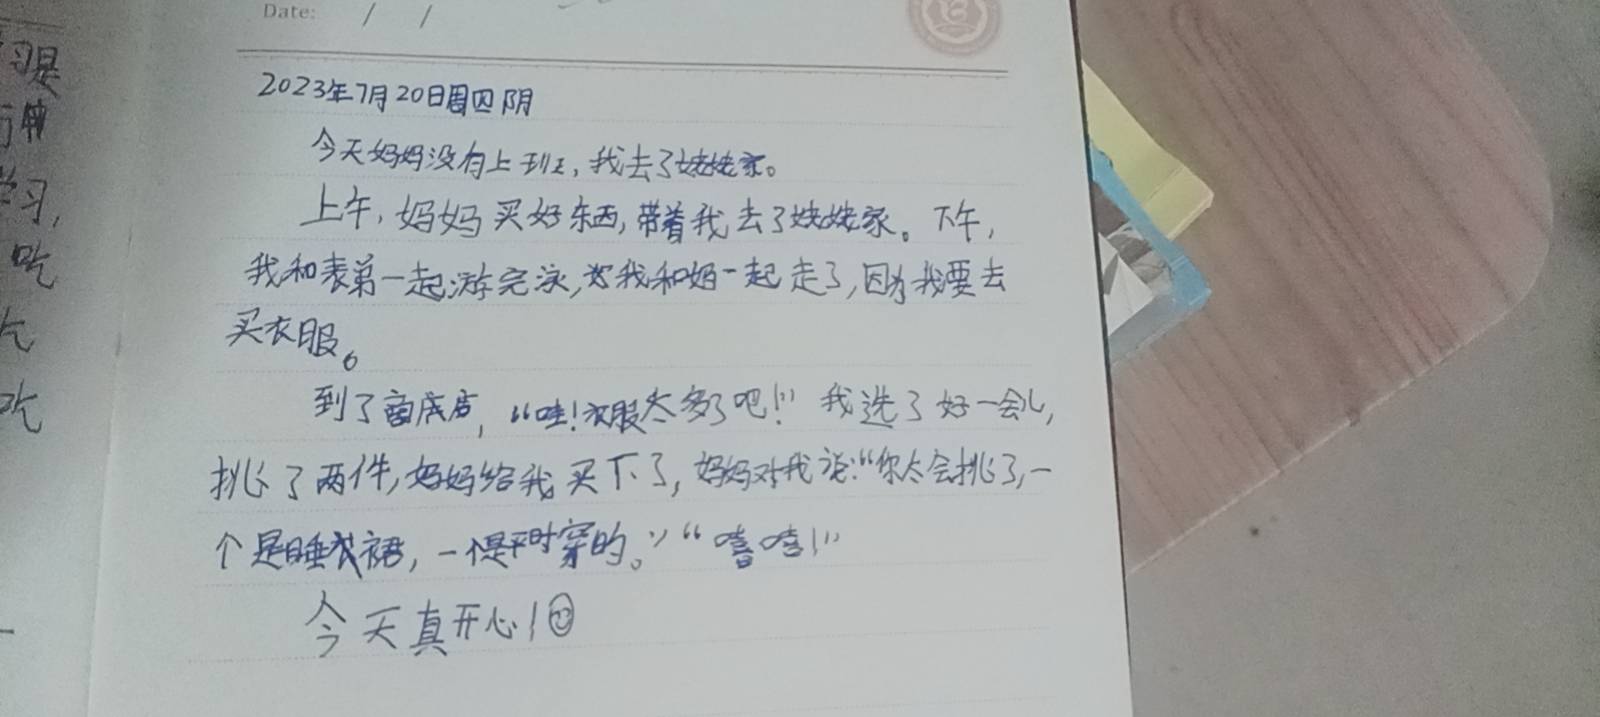 Date: / /
2023年7月20日周四 阴
今天妈妈没有上班,我去了姥姥家。
上午,妈妈买好东西,带着我去了姥姥家。下午,
我和表弟一起游完泳,我和妈一起走了,因为我要去
买衣服。
到了商店,“哇!衣服太多了吧!”我选了好一会儿,
挑了两件,妈妈给我买下了,妈妈对我说:“你太会挑了,一
个是睡裙,一个是平时穿的。”“嘻嘻!”
今天真开心!
习是
学习,
吃
吃